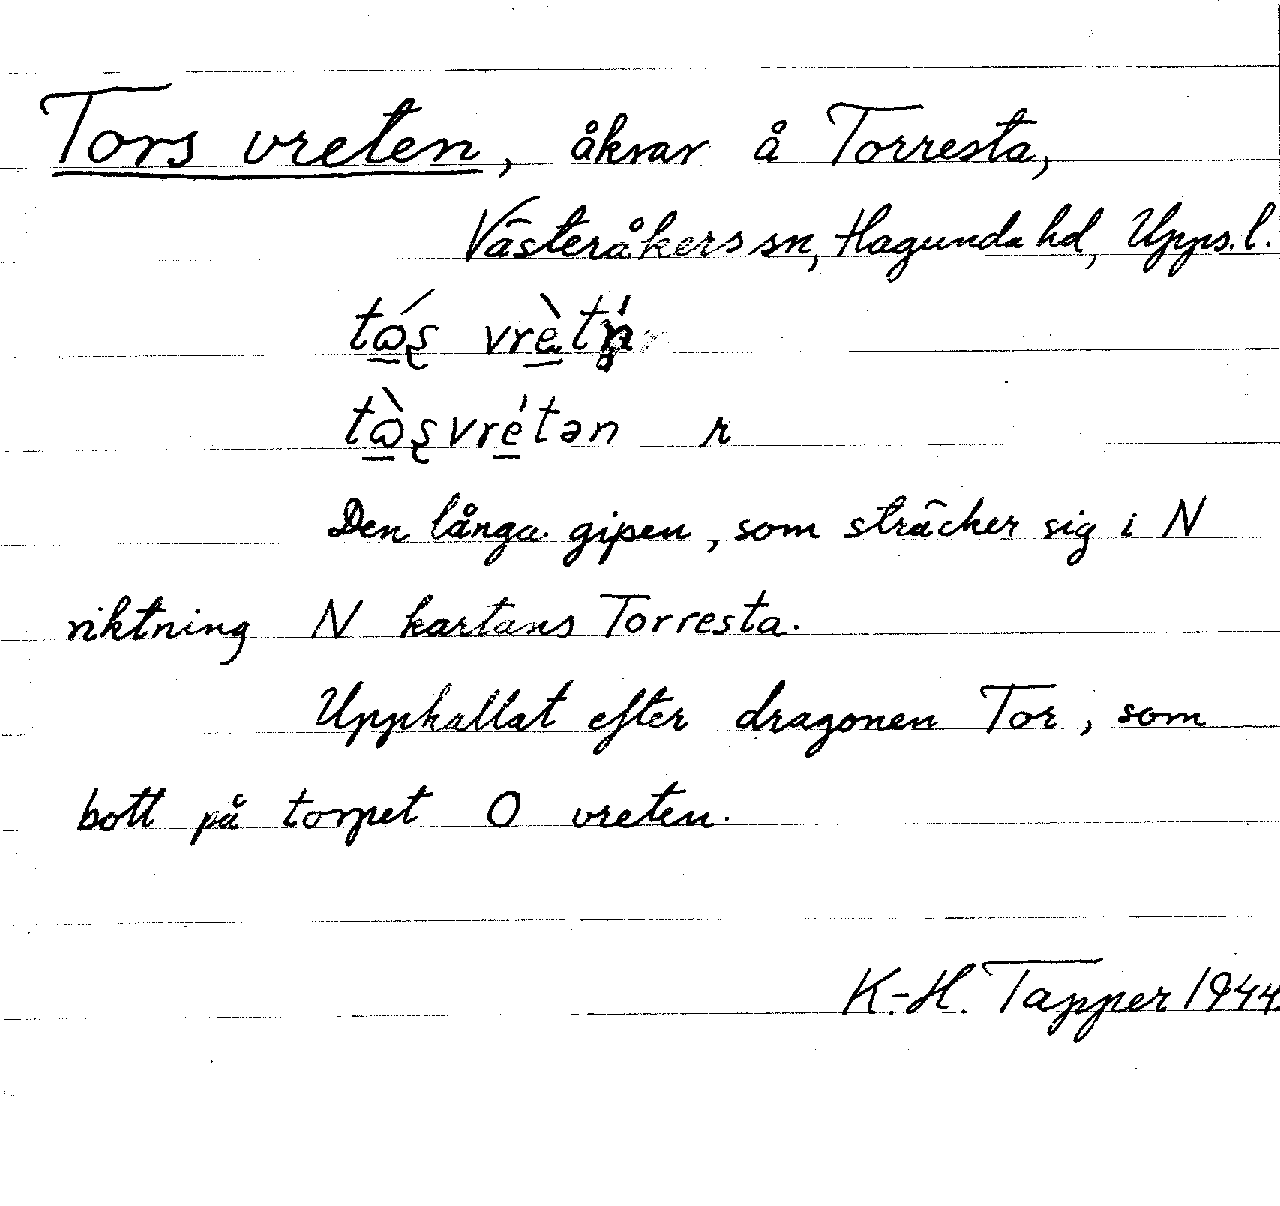 Tors vreten, åkrar å Torresta,
Västeråkers sn, Hagunda hd, Upps. l.
den långa gipen, som sträcker sig i N
riktning N kartans Torresta.
Uppkallat efter dragonen Tor, som
bott på torpet O vreten.
K.-H. Tapper 1944